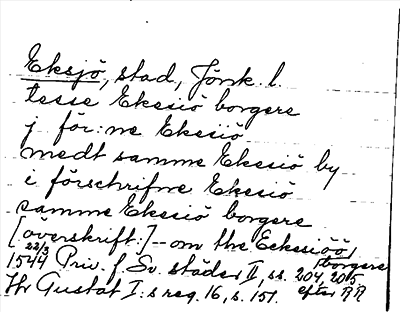 Eksjö, stad, Jönk. l.
tesse Ekesiö borgere
j för:ne Ekesiiö
medt samme Ekesiö by
i förschrifne Ekesiö
samme Ekesiö borgere
[överskrift:] - om the Eckesiöö borgere
22/3 1544 Priv. f. Sv. städer II, ss. 204, 205
Thr Gustaf I:s reg. 16, s. 151. efter RR